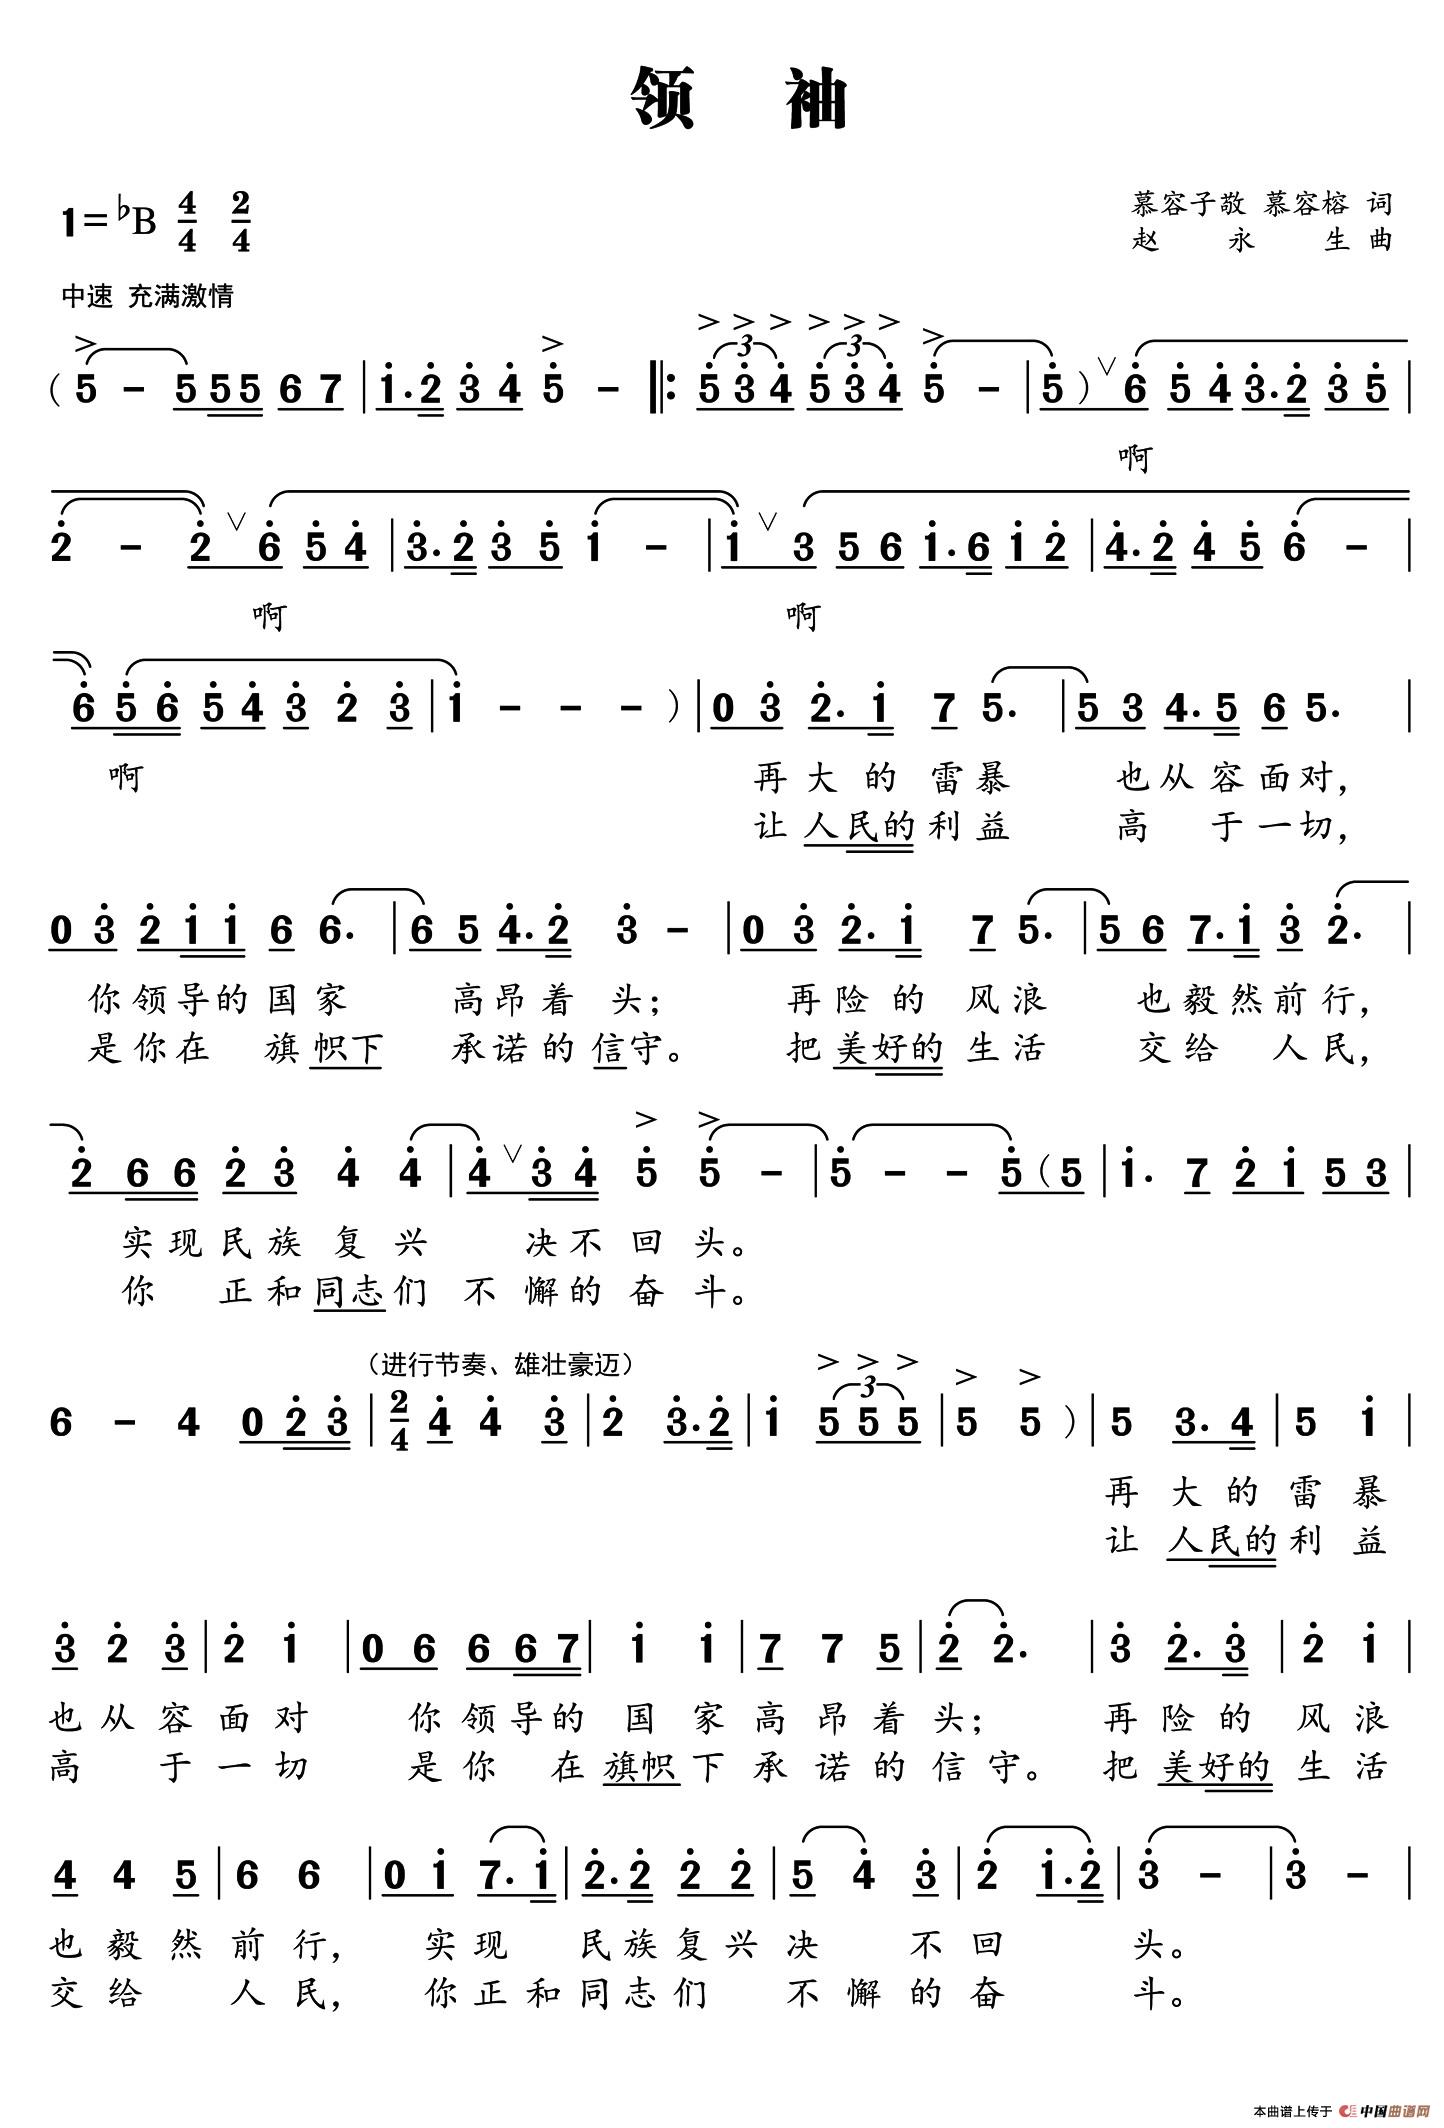 领 袖
1=♭B 4/4 2/4
慕容子敬 慕容榕 词
赵 永 生 曲
中速 充满激情
( 5 - 5 5 5 6 7 | 1. 2 3 4 5 - |: 5 3 4 5 3 4 5 - | 5 ) ∨ 6 5 4 3. 2 3 5 |
啊
2 - 2 ∨ 6 5 4 | 3. 2 3 5 1 - | 1 ∨ 3 5 6 1. 6 1 2 | 4. 2 4 5 6 - |
啊 啊
6 5 6 5 4 3 2 3 | 1 - - - ) | 0 3 2. 1 7 5. | 5 3 4. 5 6 5. |
啊 再 大 的 雷 暴 也 从 容 面 对,
让 人 民 的 利 益 高 于 一 切,
0 3 2 1 1 6 6. | 6 5 4. 2 3 - | 0 3 2. 1 7 5. | 5 6 7. 1 3 2. |
你 领 导 的 国 家 高 昂 着 头; 再 险 的 风 浪 也 毅 然 前 行,
是 你 在 旗 帜 下 承 诺 的 信 守。 把 美 好 的 生 活 交 给 人 民,
2 6 6 2 3 4 4 | 4 ∨ 3 4 5 5 - | 5 - - 5 ( 5 | 1. 7 2 1 5 3 |
实 现 民 族 复 兴 决 不 回 头。
你 正 和 同 志 们 不 懈 的 奋 斗。
(进行节奏、雄壮豪迈)
6 - 4 0 2 3 | 2/4 4 4 3 | 2 3. 2 | 1 5 5 5 | 5 5 ) | 5 3. 4 | 5 1 |
再 大 的 雷 暴
让 人 民 的 利 益
3 2 3 | 2 1 | 0 6 6 6 7 | 1 1 | 7 7 5 | 2 2. | 3 2. 3 | 2 1 |
也 从 容 面 对 你 领 导 的 国 家 高 昂 着 头; 再 险 的 风 浪
高 于 一 切 是 你 在 旗 帜 下 承 诺 的 信 守。 把 美 好 的 生 活
4 4 5 | 6 6 | 0 1 7. 1 | 2. 2 2 2 | 5 4 3 | 2 1. 2 | 3 - | 3 - |
也 毅 然 前 行, 实 现 民 族 复 兴 决 不 回 头。
交 给 人 民, 你 正 和 同 志 们 不 懈 的 奋 斗。
本曲谱上传于 中国曲谱网